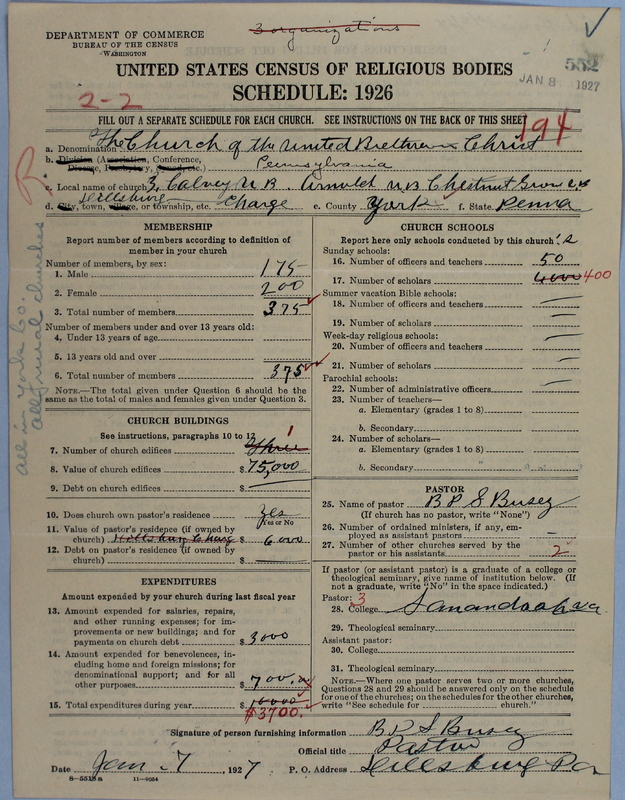 3 organizations
DEPARTMENT OF COMMERCE
BUREAU OF THE CENSUS
WASHINGTON
552
JAN 8 1927
UNITED STATES CENSUS OF RELIGIOUS BODIES
SCHEDULE: 1926
2-2
FILL OUT A SEPARATE SCHEDULE FOR EACH CHURCH. SEE INSTRUCTIONS ON THE BACK OF THIS SHEET
194
a. Denomination The Church of the United Brethren in Christ
b. Division (Association, Conference, Pennsylvania
Diocese, Presbytery, Synod, etc.)
c. Local name of church 3, Calvery U.B. Arnold U.B. Chestnut Grove U.B
d. City, town, village, or township, etc. Dillsburg Charge e. County York f. State Penna
R
all in York Co.
all rural churches
MEMBERSHIP
Report number of members according to definition of
member in your church
Number of members, by sex:
1. Male 175
2. Female 200
3. Total number of members 375
Number of members under and over 13 years old:
4. Under 13 years of age
5. 13 years old and over
6. Total number of members 375
NOTE.—The total given under Question 6 should be the
same as the total of males and females given under Question 3.
CHURCH BUILDINGS
See instructions, paragraphs 10 to 12
7. Number of church edifices Three 1
8. Value of church edifices $ 75,000
9. Debt on church edifices $ —
10. Does church own pastor's residence Yes
Yes or No
11. Value of pastor's residence (if owned by
church) Dillsburg Charge $ 6000
12. Debt on pastor's residence (if owned by
church) $ —
EXPENDITURES
Amount expended by your church during last fiscal year
13. Amount expended for salaries, repairs,
and other running expenses; for im-
provements or new buildings; and for
payments on church debt $ 3000
14. Amount expended for benevolences, in-
cluding home and foreign missions; for
denominational support; and for all
other purposes $ 700.00
15. Total expenditures during year $ 10000
$3700.
CHURCH SCHOOLS
Report here only schools conducted by this church
Sunday schools:
16. Number of officers and teachers 50
17. Number of scholars 4000 400
Summer vacation Bible schools:
18. Number of officers and teachers —
19. Number of scholars —
Week-day religious schools:
20. Number of officers and teachers —
21. Number of scholars —
Parochial schools:
22. Number of administrative officers —
23. Number of teachers—
a. Elementary (grades 1 to 8)
b. Secondary
24. Number of scholars—
a. Elementary (grades 1 to 8)
b. Secondary
PASTOR
25. Name of pastor B P S Busey
(If church has no pastor, write "None")
26. Number of ordained ministers, if any, em-
ployed as assistant pastors —
27. Number of other churches served by the
pastor or his assistants 2
If pastor (or assistant pastor) is a graduate of a college or
theological seminary, give name of institution below. (If
not a graduate, write "No" in the space indicated.)
Pastor: 3
28. College Sanandoah Va
29. Theological seminary
Assistant pastor:
30. College
31. Theological seminary
NOTE.—Where one pastor serves two or more churches,
Questions 28 and 29 should be answered only on the schedule
for one of the churches; on the schedules for the other churches,
write "See schedule for church."
Signature of person furnishing information B P S Busey
Official title Pastor
Date Jan 7, 1927 P. O. Address Dillsburg Pa
8-5518a 11-9054